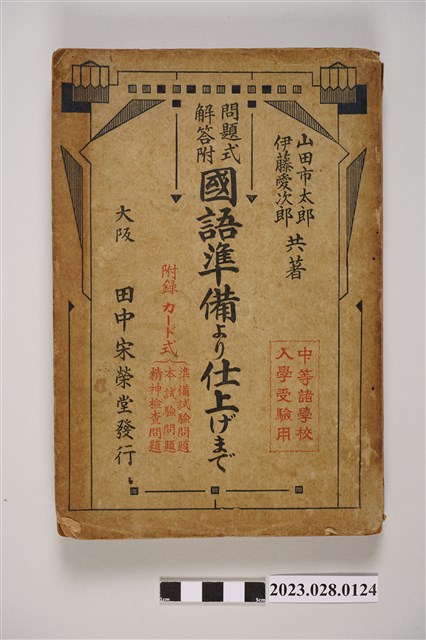 山田市太郎
伊藤愛次郎
共著
中等諸學校
入學受驗用
問題式
解答附
國語準備より仕上げまで
附錄 カード式
準備試驗問題
本試驗問題
精神檢査問題
大阪 田中宋榮堂發行
5cm
5cm
2023.028.0124